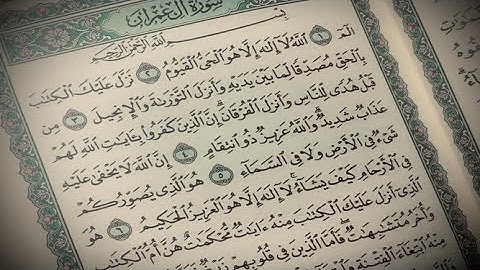 سُورَةُ آلِ عِمْرَانَ
بِسْمِ اللَّهِ الرَّحْمَٰنِ الرَّحِيمِ
الٓمٓ ١ ٱللَّهُ لَآ إِلَٰهَ إِلَّا هُوَ ٱلْحَىُّ ٱلْقَيُّومُ ٢ نَزَّلَ عَلَيْكَ ٱلْكِتَٰبَ
بِٱلْحَقِّ مُصَدِّقًا لِّمَا بَيْنَ يَدَيْهِ وَأَنزَلَ ٱلتَّوْرَىٰةَ وَٱلْإِنجِيلَ ٣ مِن
قَبْلُ هُدًى لِّلنَّاسِ وَأَنزَلَ ٱلْفُرْقَانَ إِنَّ ٱلَّذِينَ كَفَرُوا۟ بِـَٔايَٰتِ ٱللَّهِ لَهُمْ
عَذَابٌ شَدِيدٌ وَٱللَّهُ عَزِيزٌ ذُو ٱنتِقَامٍ ٤ إِنَّ ٱللَّهَ لَا يَخْفَىٰ عَلَيْهِ
شَىْءٌ فِى ٱلْأَرْضِ وَلَا فِى ٱلسَّمَآءِ ٥ هُوَ ٱلَّذِى يُصَوِّرُكُمْ
فِى ٱلْأَرْحَامِ كَيْفَ يَشَآءُ لَآ إِلَٰهَ إِلَّا هُوَ ٱلْعَزِيزُ ٱلْحَكِيمُ ٦ هُوَ
ٱلَّذِىٓ أَنزَلَ عَلَيْكَ ٱلْكِتَٰبَ مِنْهُ ءَايَٰتٌ مُّحْكَمَٰتٌ هُنَّ أُمُّ ٱلْكِتَٰبِ
وَأُخَرُ مُتَشَٰبِهَٰتٌ فَأَمَّا ٱلَّذِينَ فِى قُلُوبِهِمْ
مِنْهُ ٱبْتِغَآءَ ٱلْفِتْنَةِ